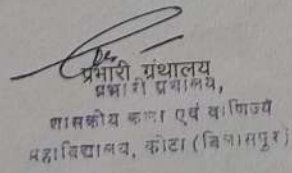 प्रभारी ग्रंथालय
प्रभारी ग्रंथालय,
शासकीय कला एवं वाणिज्य
महाविद्यालय, कोटा (बिलासपुर)